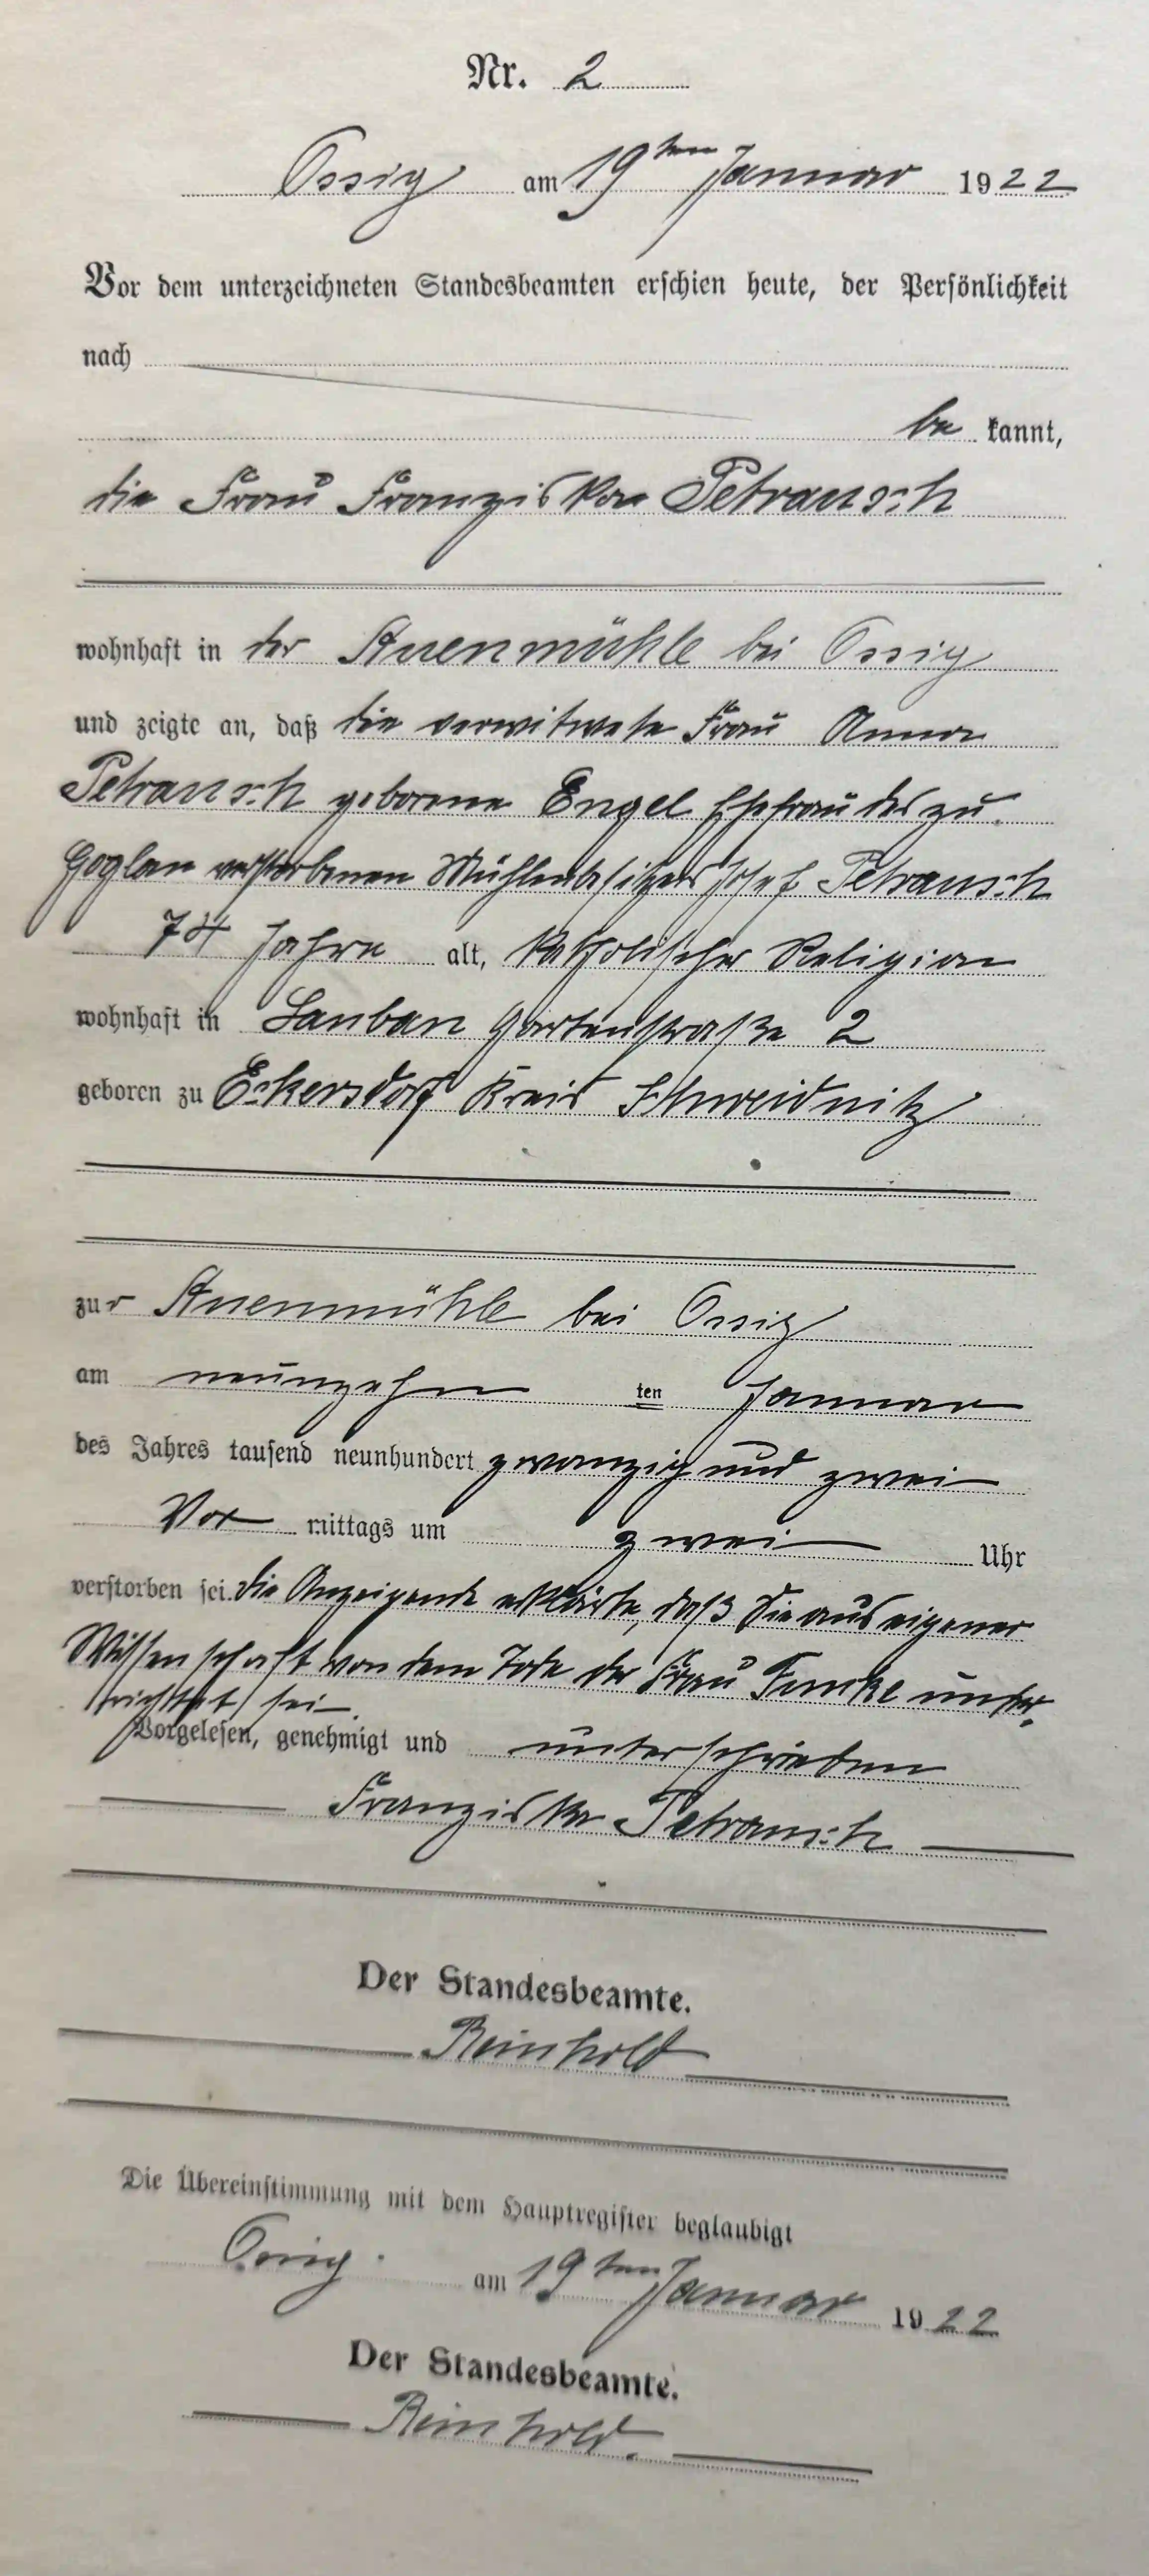 Nr. 2
Ossig am 19ten Januar 1922
Vor dem unterzeichneten Standesbeamten erschien heute, der Persönlichkeit
nach
be kannt,
die Frau Franziska Petrausch
wohnhaft in der Auenmühle bei Ossig
und zeigte an, daß die verwitwete Frau Anna
Petrausch geborene Engel Ehefrau des zu
Goglau verstorbenen Mühlenbesitzers Josef Petrausch
74 Jahre alt, katholischer Religion
wohnhaft in Lauban Gartenstraße 2
geboren zu Eckersdorf Kreis Schweidnitz
zur Auenmühle bei Ossig
am neunzehn ten Januar
des Jahres tausend neunhundert zwanzig und zwei
Vor mittags um zwei Uhr
verstorben sei. Die Anzeigende erklärte, daß Sie aus eigener
Wissenschaft von dem Tode der Frau unter-
richtet sei.
Vorgelesen, genehmigt und unterschrieben
Franziska Petrausch
Der Standesbeamte.
Reinhold
Die Übereinstimmung mit dem Hauptregister beglaubigt
Ossig. am 19ten Januar 1922
Der Standesbeamte.
Reinhold.